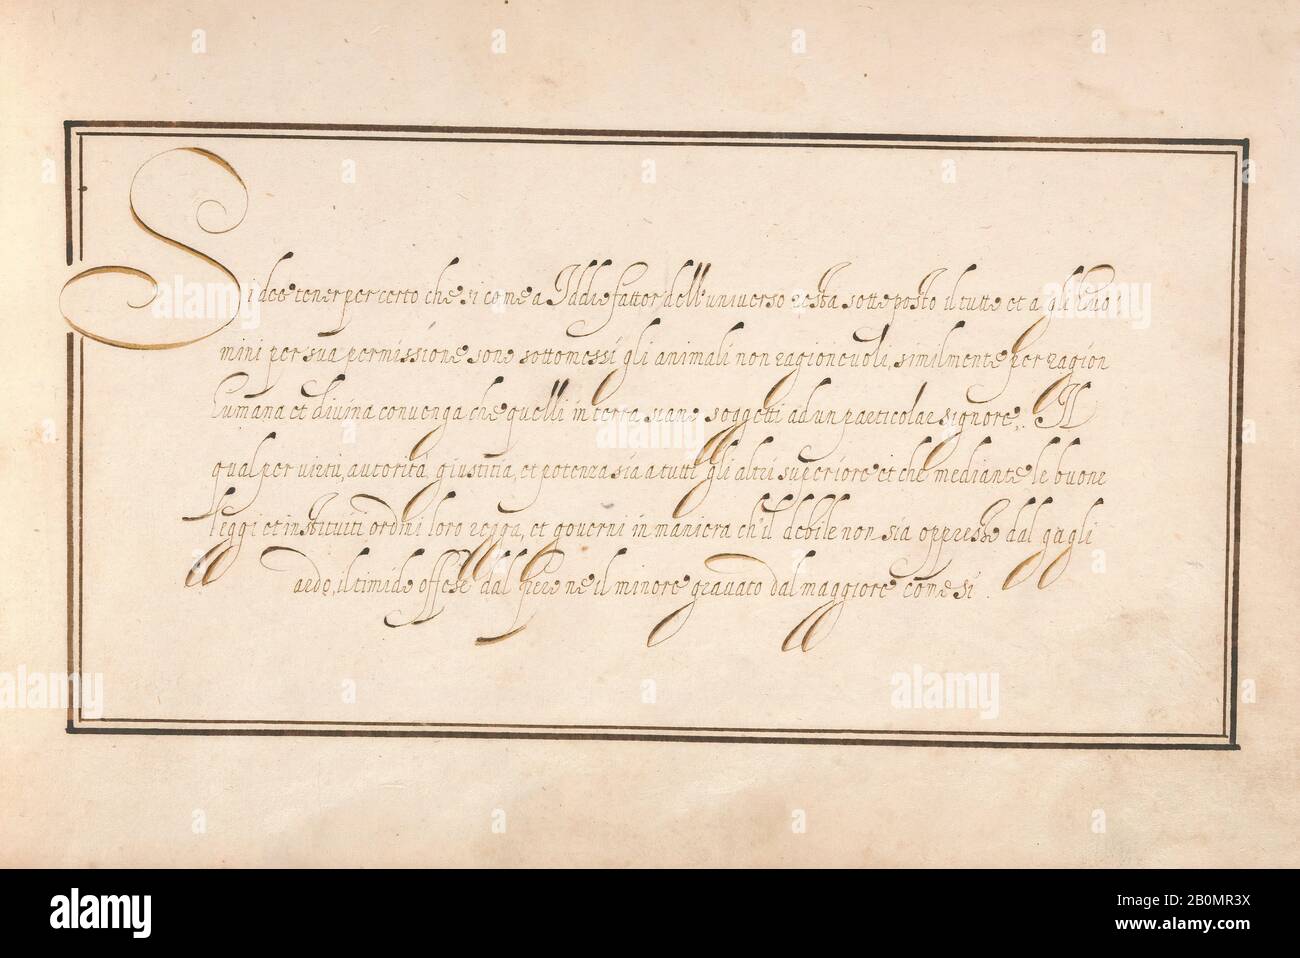 Si dee tener per certo che si come a Iddie fattor dell universo resta sotteposto il tutte et a gli huo:
mini per sua permissione sone sottomessi gli animali non ragionevoli, similmente per ragion
humana et divina convenga che quelli in terra siane soggetti ad un particolar signore,. Il
qual per virtù, autorità, giustitia, et potenza sia a tutti gli altri superiore et che mediante le buone
leggi et instituiti ordini loro regga, et governi in maniera ch'il debile non sia oppresse dal gagli
ardo, il timide offese dal fiero ne il minore gravato dal maggiore come si.
alamy
Image ID: 2B0MR3X
www.alamy.com